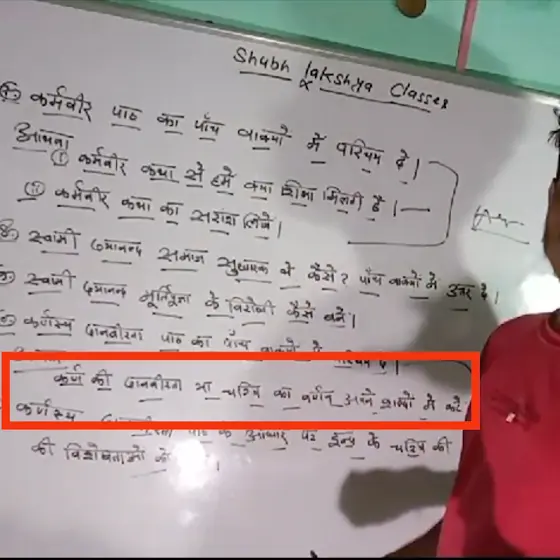 Shubh Lakshya Classes
कर्मवीर पाठ का पाँच वाक्यों में परिचय दे।
अथवा
① कर्मवीर कथा से हमें क्या शिक्षा मिलती है।
② कर्मवीर कथा का सारांश लिखें।
स्वामी दयानन्द समाज सुधारक थे कैसे? पाँच वाक्यों में उत्तर दे।
स्वामी दयानन्द मूर्तिपूजा के विरोधी कैसे बने।
कर्णस्य दानवीरता पाठ का पाँच वाक्यों में परिचय दे।
कर्ण की दानवीरता या चरित्र का वर्णन अपने शब्दों में करें
कर्णस्य दानवीरता पाठ के आधार पर इन्द्र के चरित्र की
की विशेषताओं को